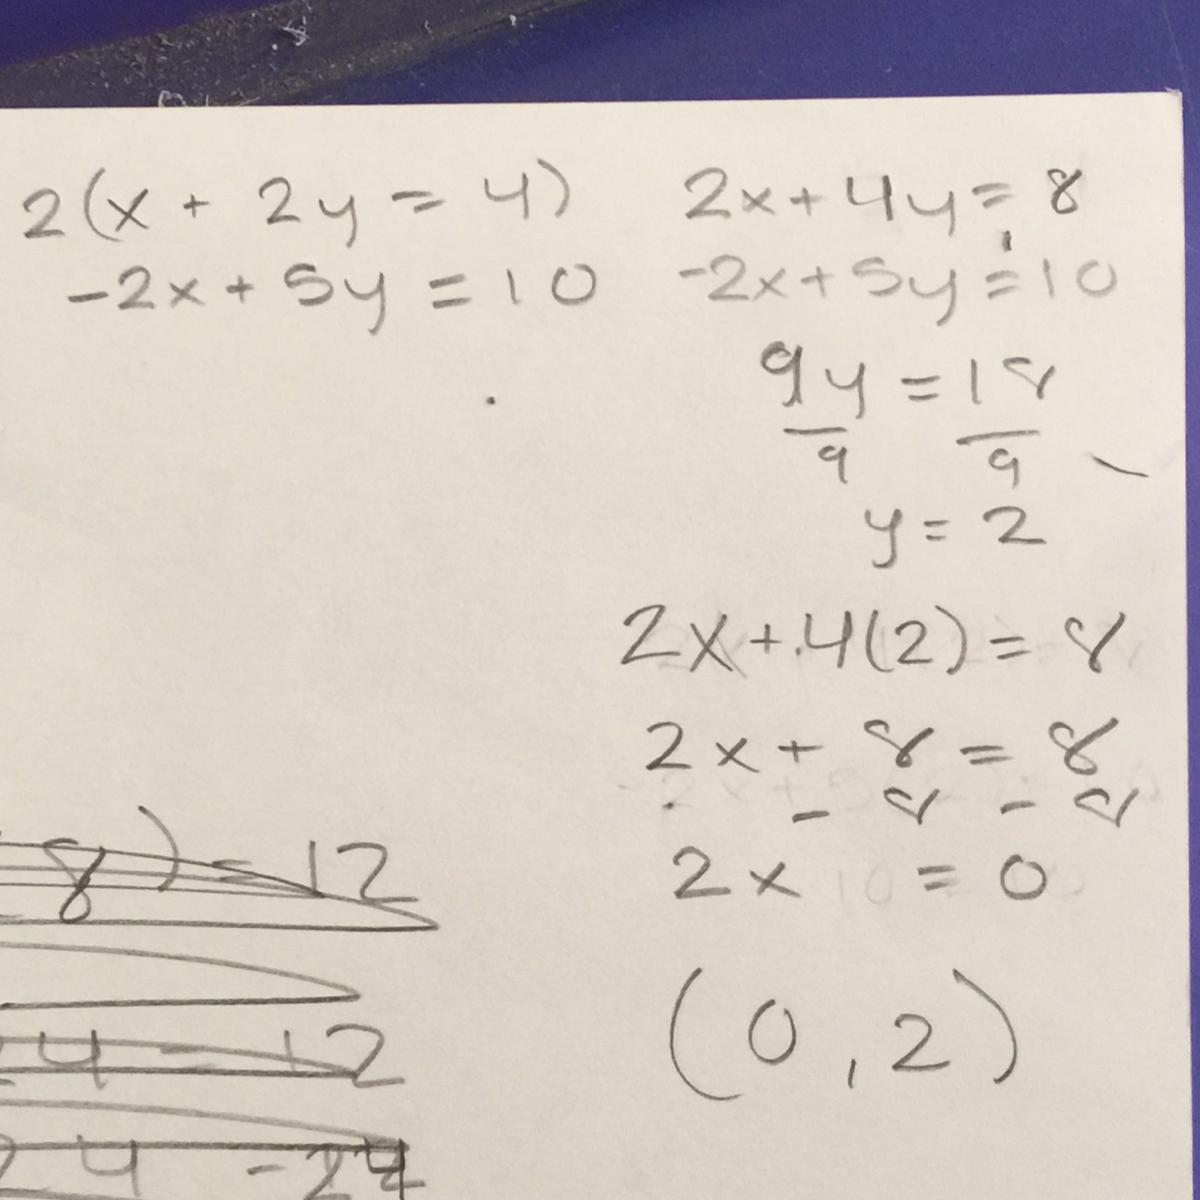 2(x + 2y = 4)
-2x + 5y = 10
2x + 4y = 8
-2x + 5y = 10
9y = 18
9 9
y = 2
2x + 4(2) = 8
2x + 8 = 8
- 8 - 8
2x = 0
(0, 2)
8) = 12
24 - 12
24 -24